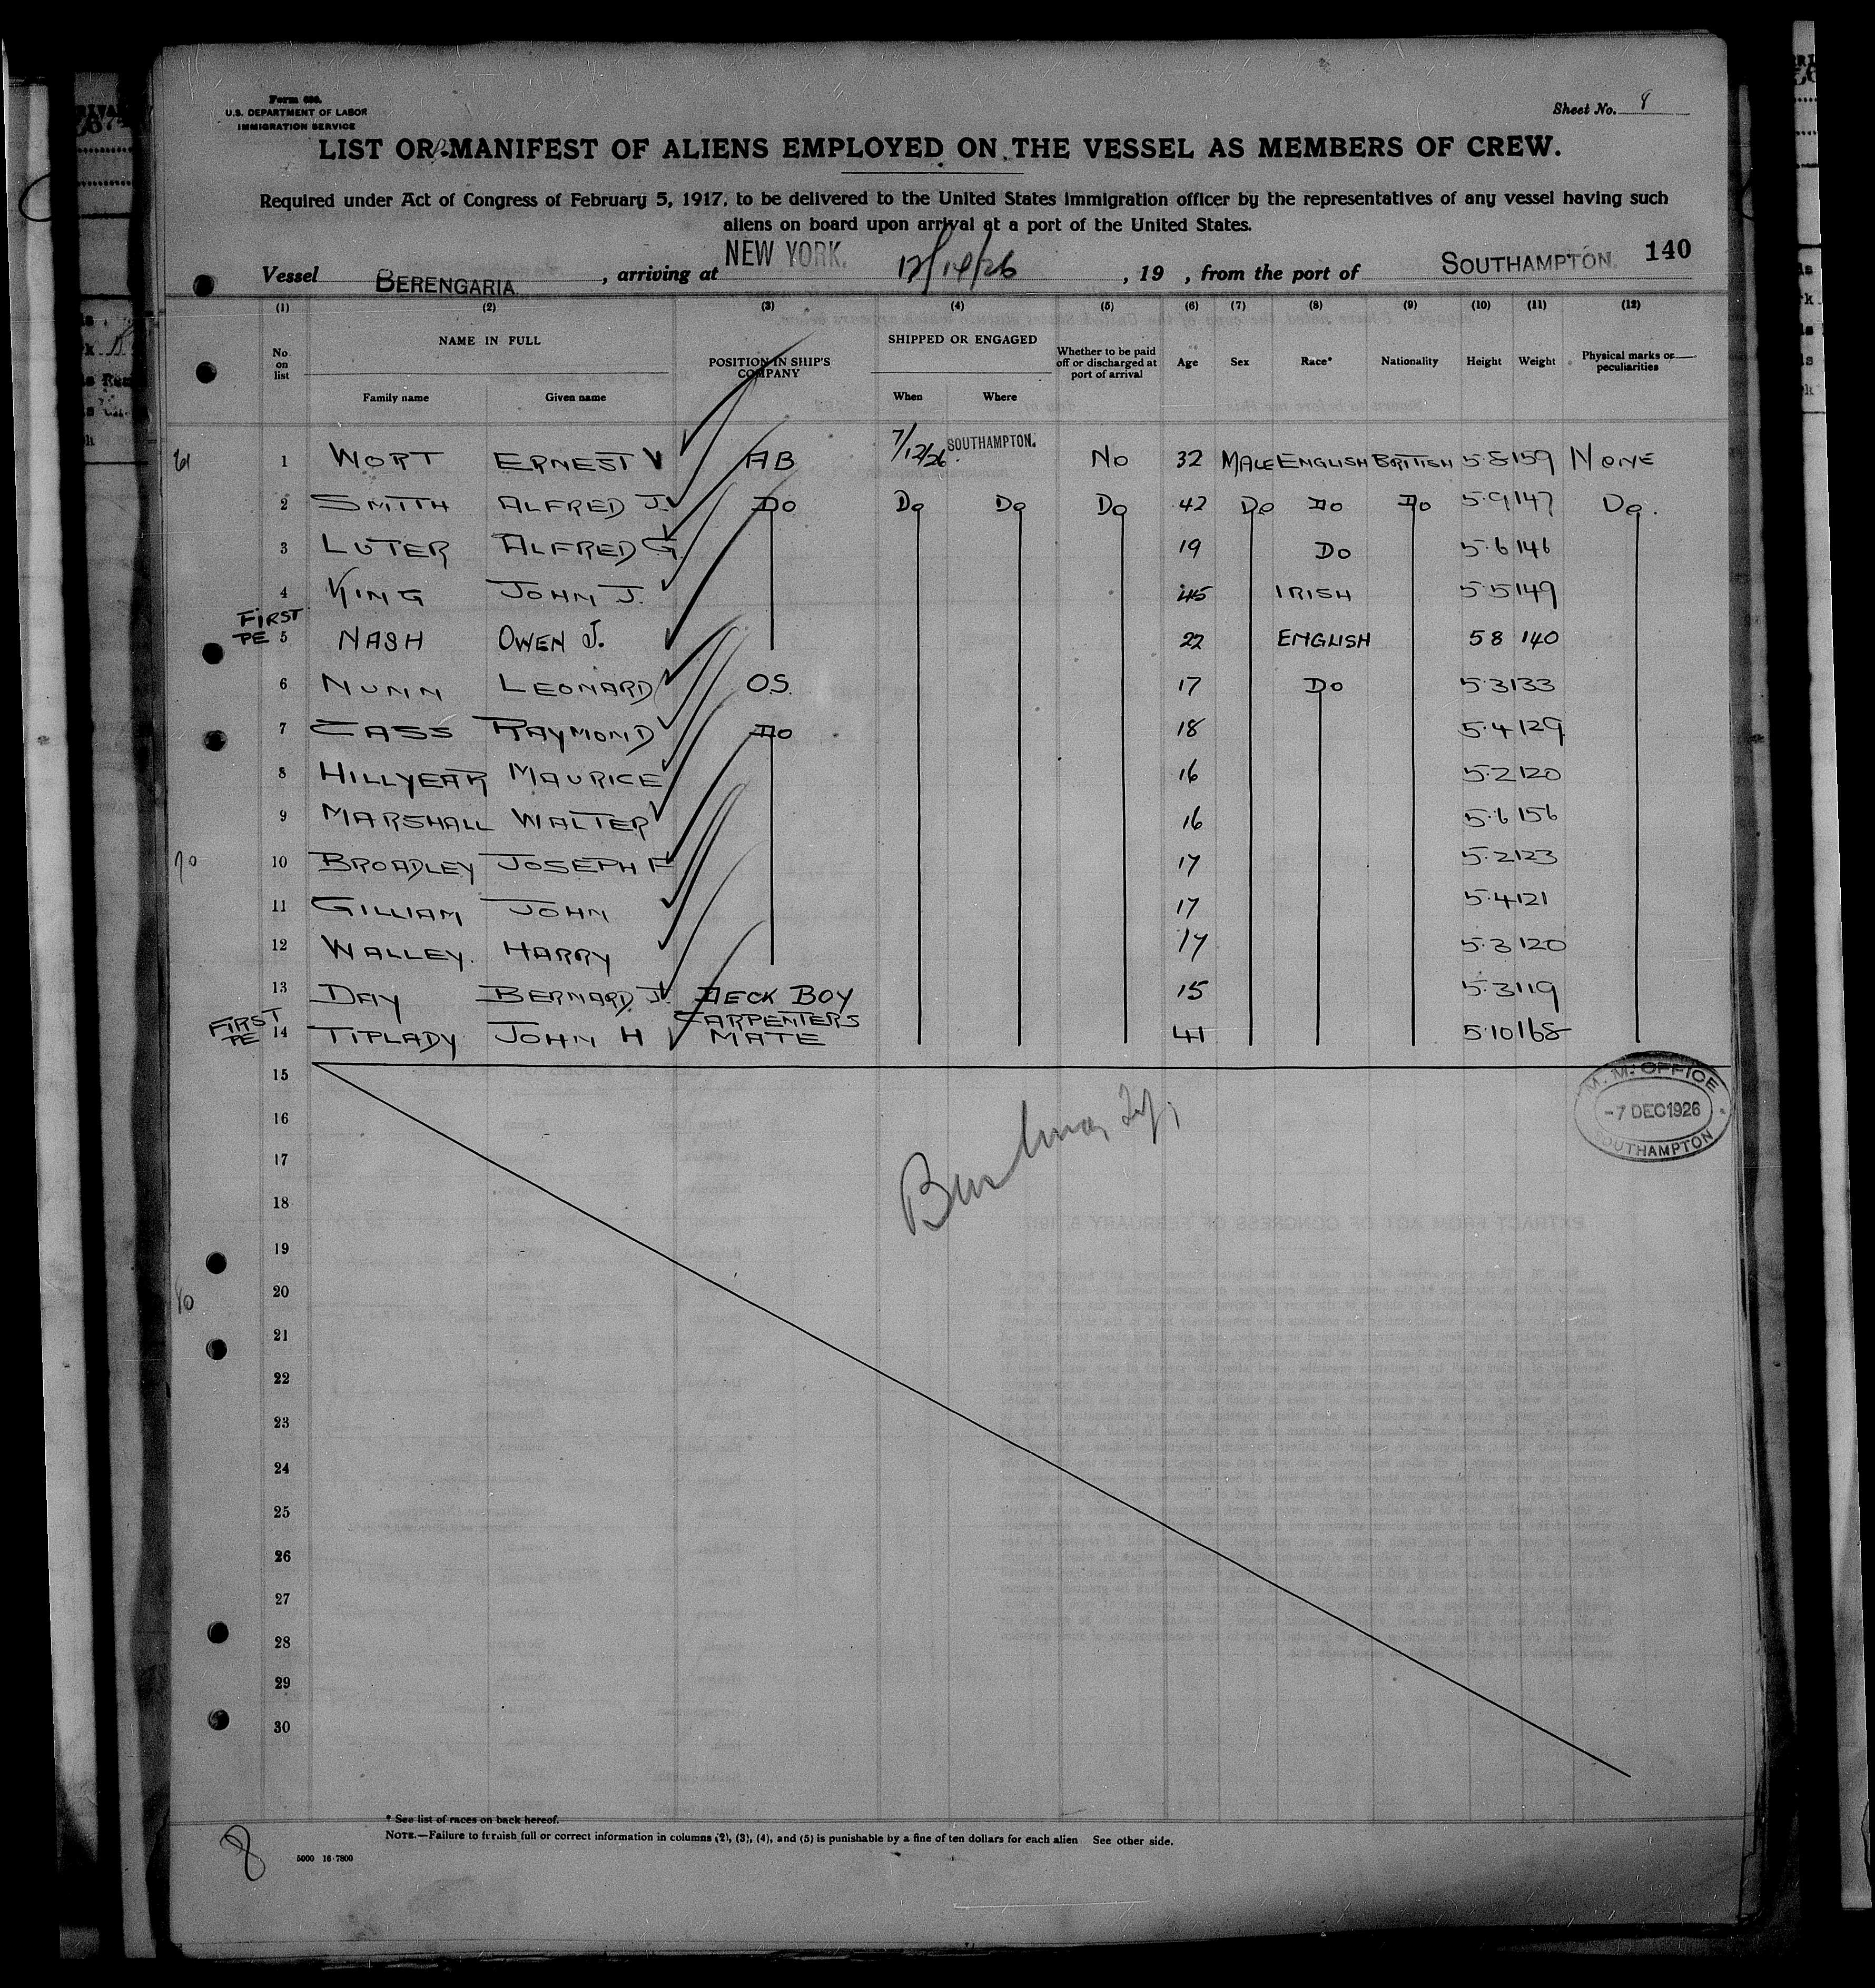 Form 680.
U.S. DEPARTMENT OF LABOR
IMMIGRATION SERVICE
Sheet No. 8
LIST OR MANIFEST OF ALIENS EMPLOYED ON THE VESSEL AS MEMBERS OF CREW.
Required under Act of Congress of February 5, 1917, to be delivered to the United States immigration officer by the representatives of any vessel having such
aliens on board upon arrival at a port of the United States.
Vessel BERENGARIA, arriving at NEW YORK. 12/14/26, 19 , from the port of SOUTHAMPTON. 140
(1) (2) (3) (4) (5) (6) (7) (8) (9) (10) (11) (12)
No. on list NAME IN FULL POSITION IN SHIP'S COMPANY SHIPPED OR ENGAGED Whether to be paid off or discharged at port of arrival Age Sex Race* Nationality Height Weight Physical marks or peculiarities
Family name Given name When Where
61 1 WORT ERNEST V AB 7/12/26 SOUTHAMPTON. No 32 MALE ENGLISH BRITISH 5·8 159 NONE
2 SMITH ALFRED J. Do Do Do Do 42 Do Do Do 5·9 147 Do.
3 LUTER ALFRED G. 19 Do 5·6 146
4 KING JOHN J. 45 IRISH 5·5 149
FIRST PE 5 NASH OWEN J. 22 ENGLISH 5 8 140
6 NUNN LEONARD O.S. 17 Do 5·3 133
7 CASS RAYMOND Do 18 5·4 129
8 HILLYEAR MAURICE 16 5·2 120
9 MARSHALL WALTER 16 5·6 156
70 10 BROADLEY JOSEPH F 17 5·2 123
11 GILLIAM JOHN 17 5·4 121
12 WALLEY. HARRY 17 5·3 120
13 DAY BERNARD J. DECK BOY 15 5·3 119
FIRST PE 14 TIPLADY JOHN H CARPENTERS MATE 41 5·10 168
15
M. M. OFFICE
-7 DEC 1926
SOUTHAMPTON
16
17
18
19
80 20
21
22
23
24
25
26
27
28
29
30
* See list of races on back hereof.
NOTE.—Failure to furnish full or correct information in columns (2), (3), (4), and (5) is punishable by a fine of ten dollars for each alien See other side.
8
5000 16-7800